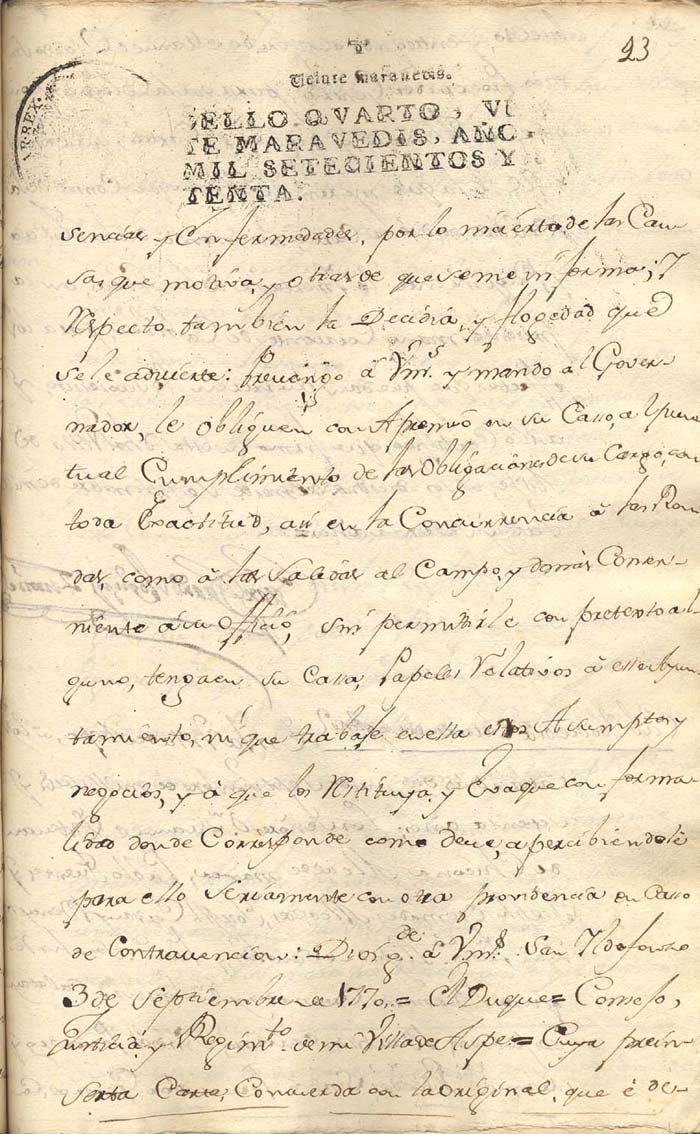 23
Veinte maravedis.
SELLO QVARTO, VE
TE MARAVEDIS, AÑO
MIL SETECIENTOS Y
TENTA.
AR. REX.
sencias y Enfermedades, por lo incierto de las Cau
sas que motiva, y otras de que se me informa; Y
Respecto, tambien la Decidia, y flogedad que
se le advierte: Prevengo à Vms. y mando al Gover-
nador, le obliguen con Apremio en su Caso, a l punc
tual Cumplimiento de las Obligaciones de su Cargo, con
toda Exactitud, asi en la Concurrencia à las Ron
das, como à las Salidas al Campo, y demàs Conve-
niente à su Officio, sin permitirle con pretexto al
guno, tenga en su Casa, Papeles Relativos à esse Ayun
tamiento, ni que trabaje en ella estos Asumptos y
negocios, y à que los Restituya, y Evaque con forma
lidad donde Corresponde como deve, apercibiendole
para ello seriamente con otra providencia en Caso
de Contravencion: Dios gde. à Vms. San Ildefonso
3 de Septiembre de 1770,= El Duque= Consejo,
Justicia y Regimto. de mi Villa de Aspe.= Cuya prein
serta Carta, Concuerda con la Original, que è de-